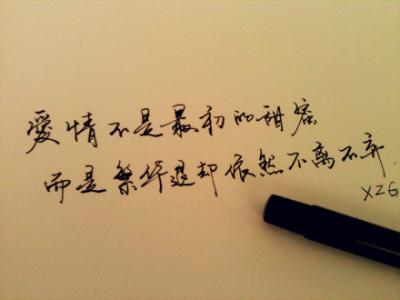 愛情不是最初的甜蜜
而是繁华退却依然不离不弃.
XZG